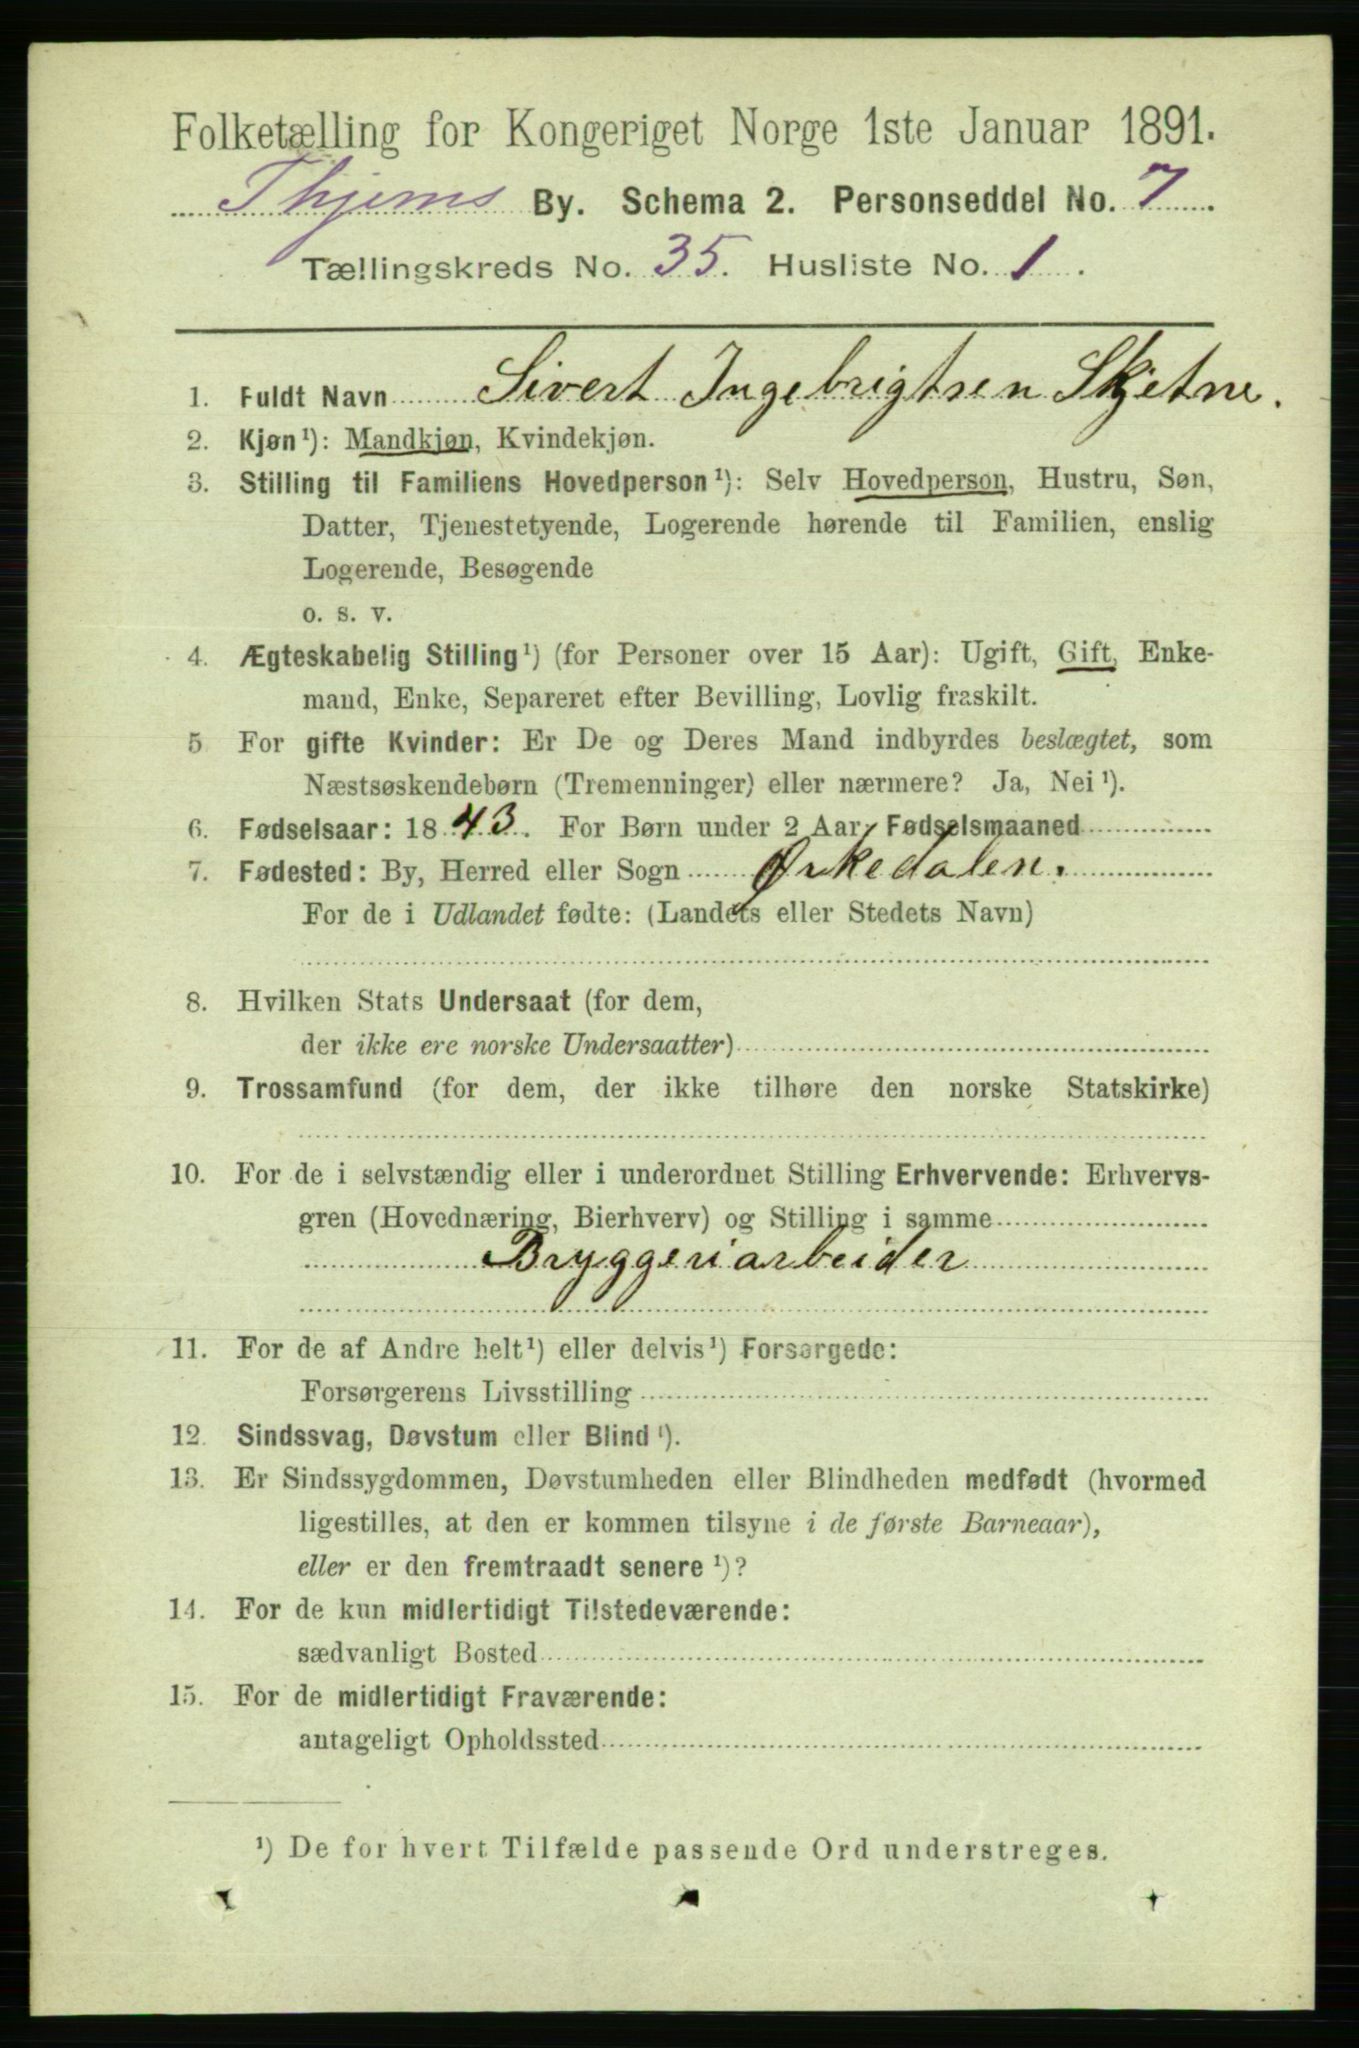 Folketælling for Kongeriget Norge 1ste Januar 1891.
Thjems By. Schema 2. Personseddel No. 7
Tællingskreds No. 35. Husliste No. 1.
1. Fuldt Navn Sivert Ingebrigtsen Skjetne.
2. Kjøn¹): Mandkjøn, Kvindekjøn.
3. Stilling til Familiens Hovedperson¹): Selv Hovedperson, Hustru, Søn,
Datter, Tjenestetyende, Logerende hørende til Familien, enslig
Logerende, Besøgende
o. s. v.
4. Ægteskabelig Stilling¹) (for Personer over 15 Aar): Ugift, Gift, Enke-
mand, Enke, Separeret efter Bevilling, Lovlig fraskilt.
5 For gifte Kvinder: Er De og Deres Mand indbyrdes beslægtet, som
Næstsøskendebørn (Tremenninger) eller nærmere? Ja, Nei¹).
6. Fødselsaar: 1843. For Børn under 2 Aar: Fødselsmaaned
7. Fødested: By, Herred eller Sogn Ørkedalen.
For de i Udlandet fødte: (Landets eller Stedets Navn)
8. Hvilken Stats Undersaat (for dem,
der ikke ere norske Undersaatter)
9. Trossamfund (for dem, der ikke tilhøre den norske Statskirke)
10. For de i selvstændig eller i underordnet Stilling Erhvervende: Erhvervs-
gren (Hovednæring, Bierhverv) og Stilling i samme
Bryggeriarbeider
11. For de af Andre helt¹) eller delvis¹) Forsørgede:
Forsørgerens Livsstilling
12. Sindssvag, Døvstum eller Blind¹).
13. Er Sindssygdommen, Døvstumheden eller Blindheden medfødt (hvormed
ligestilles, at den er kommen tilsyne i de første Barneaar),
eller er den fremtraadt senere¹)?
14. For de kun midlertidigt Tilstedeværende:
sædvanligt Bosted
15. For de midlertidigt Fraværende:
antageligt Opholdssted
¹) De for hvert Tilfælde passende Ord understreges.